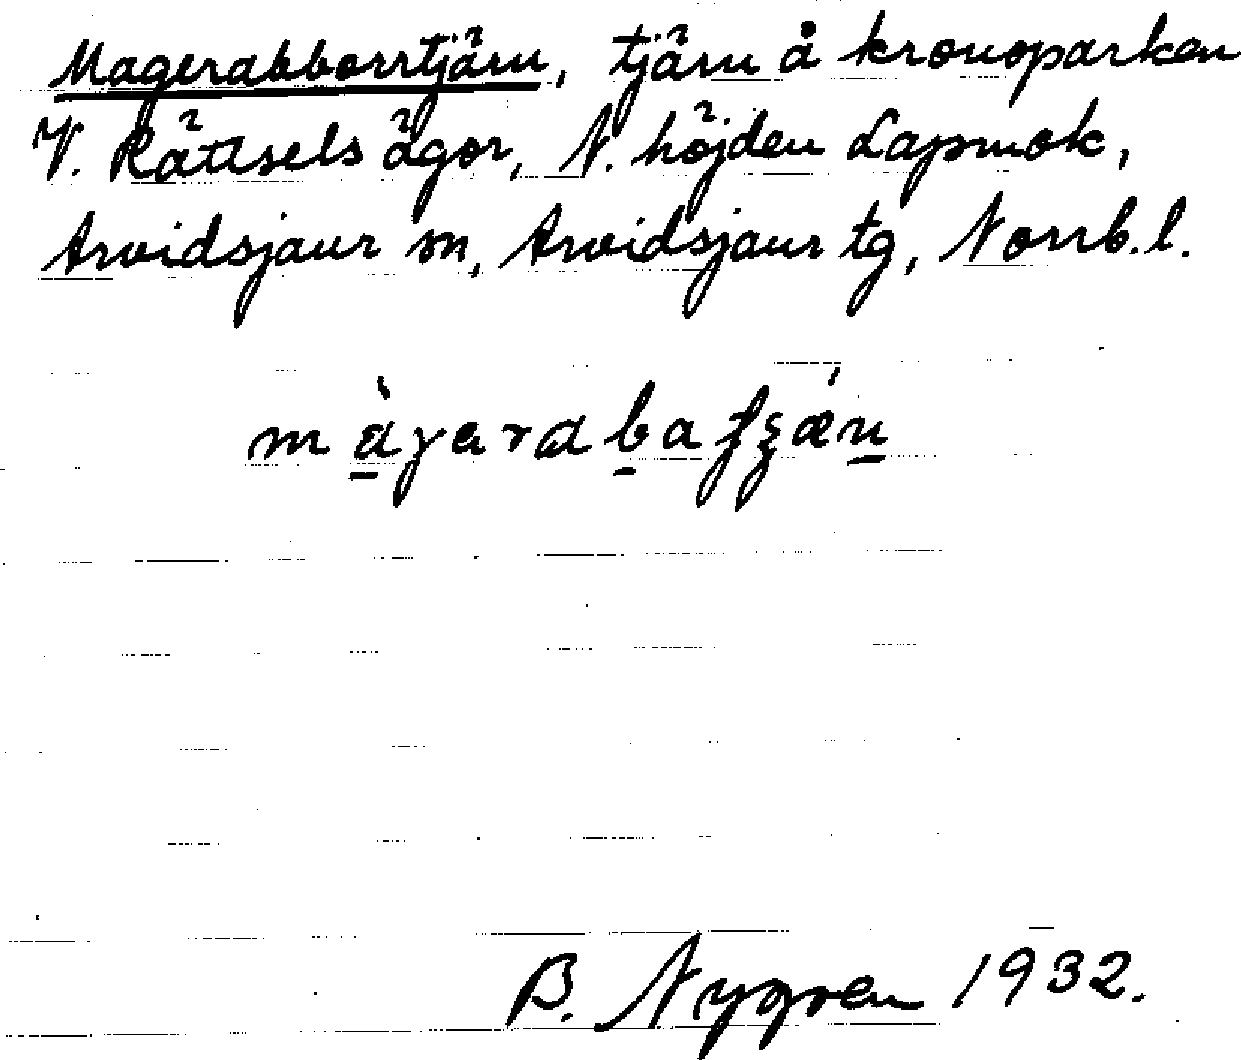 Magerabborrtjärn, tjärn å kronoparken
V. Rättsels ägor, N. höjden Lapmok,
Arvidsjaur sn, Arvidsjaur tg, Norrb. l.
B. Nygren 1932.